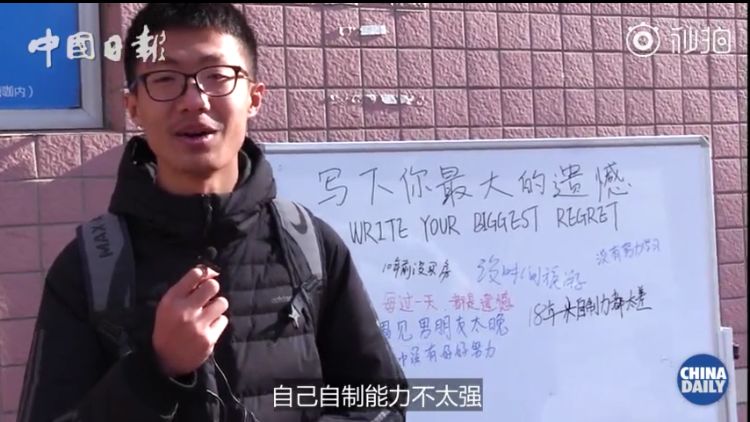 中國日報
秒拍
咖内）
写下你最大的遗憾
WRITE YOUR BIGGEST REGRET
没有努力学习
10年前没买房
每过一天，都是遗憾
18年来自制力都太差
遇见男朋友太晚
中没有好好努力
MAX
自己自制能力不太强
CHINA
DAILY